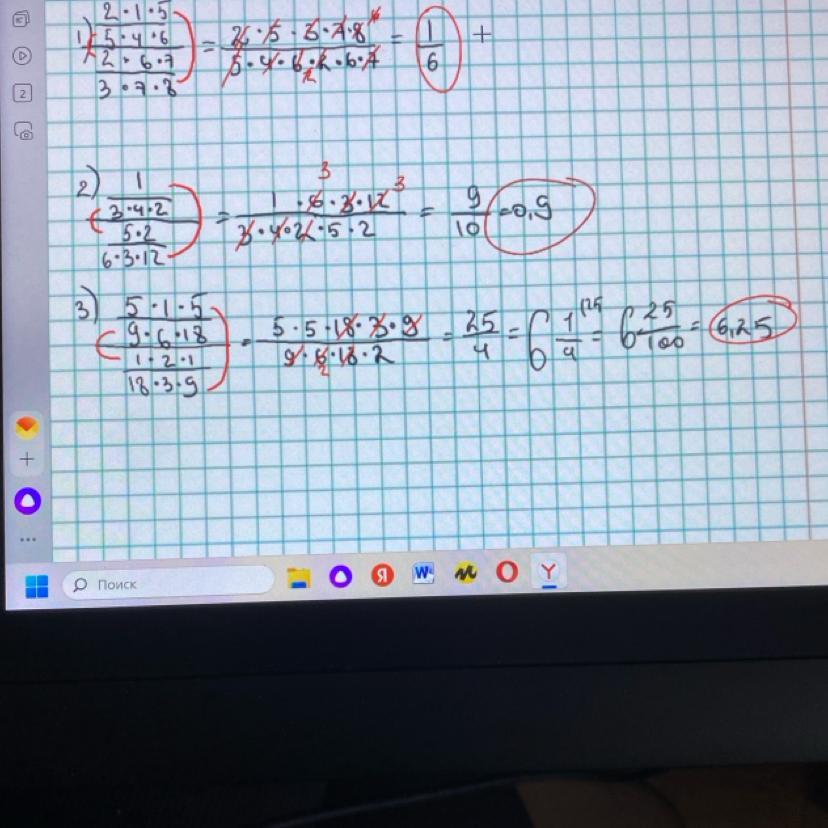 1) 2·1·5 / 5·4·6 / 2·6·7 / 3·7·8 = 2·5·3·7·8 / 5·4·6·2·6·7 = 1/6 +
2) 1 / 3·4·2 / 5·2 / 6·3·12 = 1·6·3·12 / 3·4·2·5·2 = 9/10 = 0,9
3) 5·1·5 / 9·6·18 / 1·2·1 / 18·3·9 = 5·5·18·3·9 / 9·6·18·2 = 25/4 = 6 1/4 = 6 25/100 = 6,25
Поиск